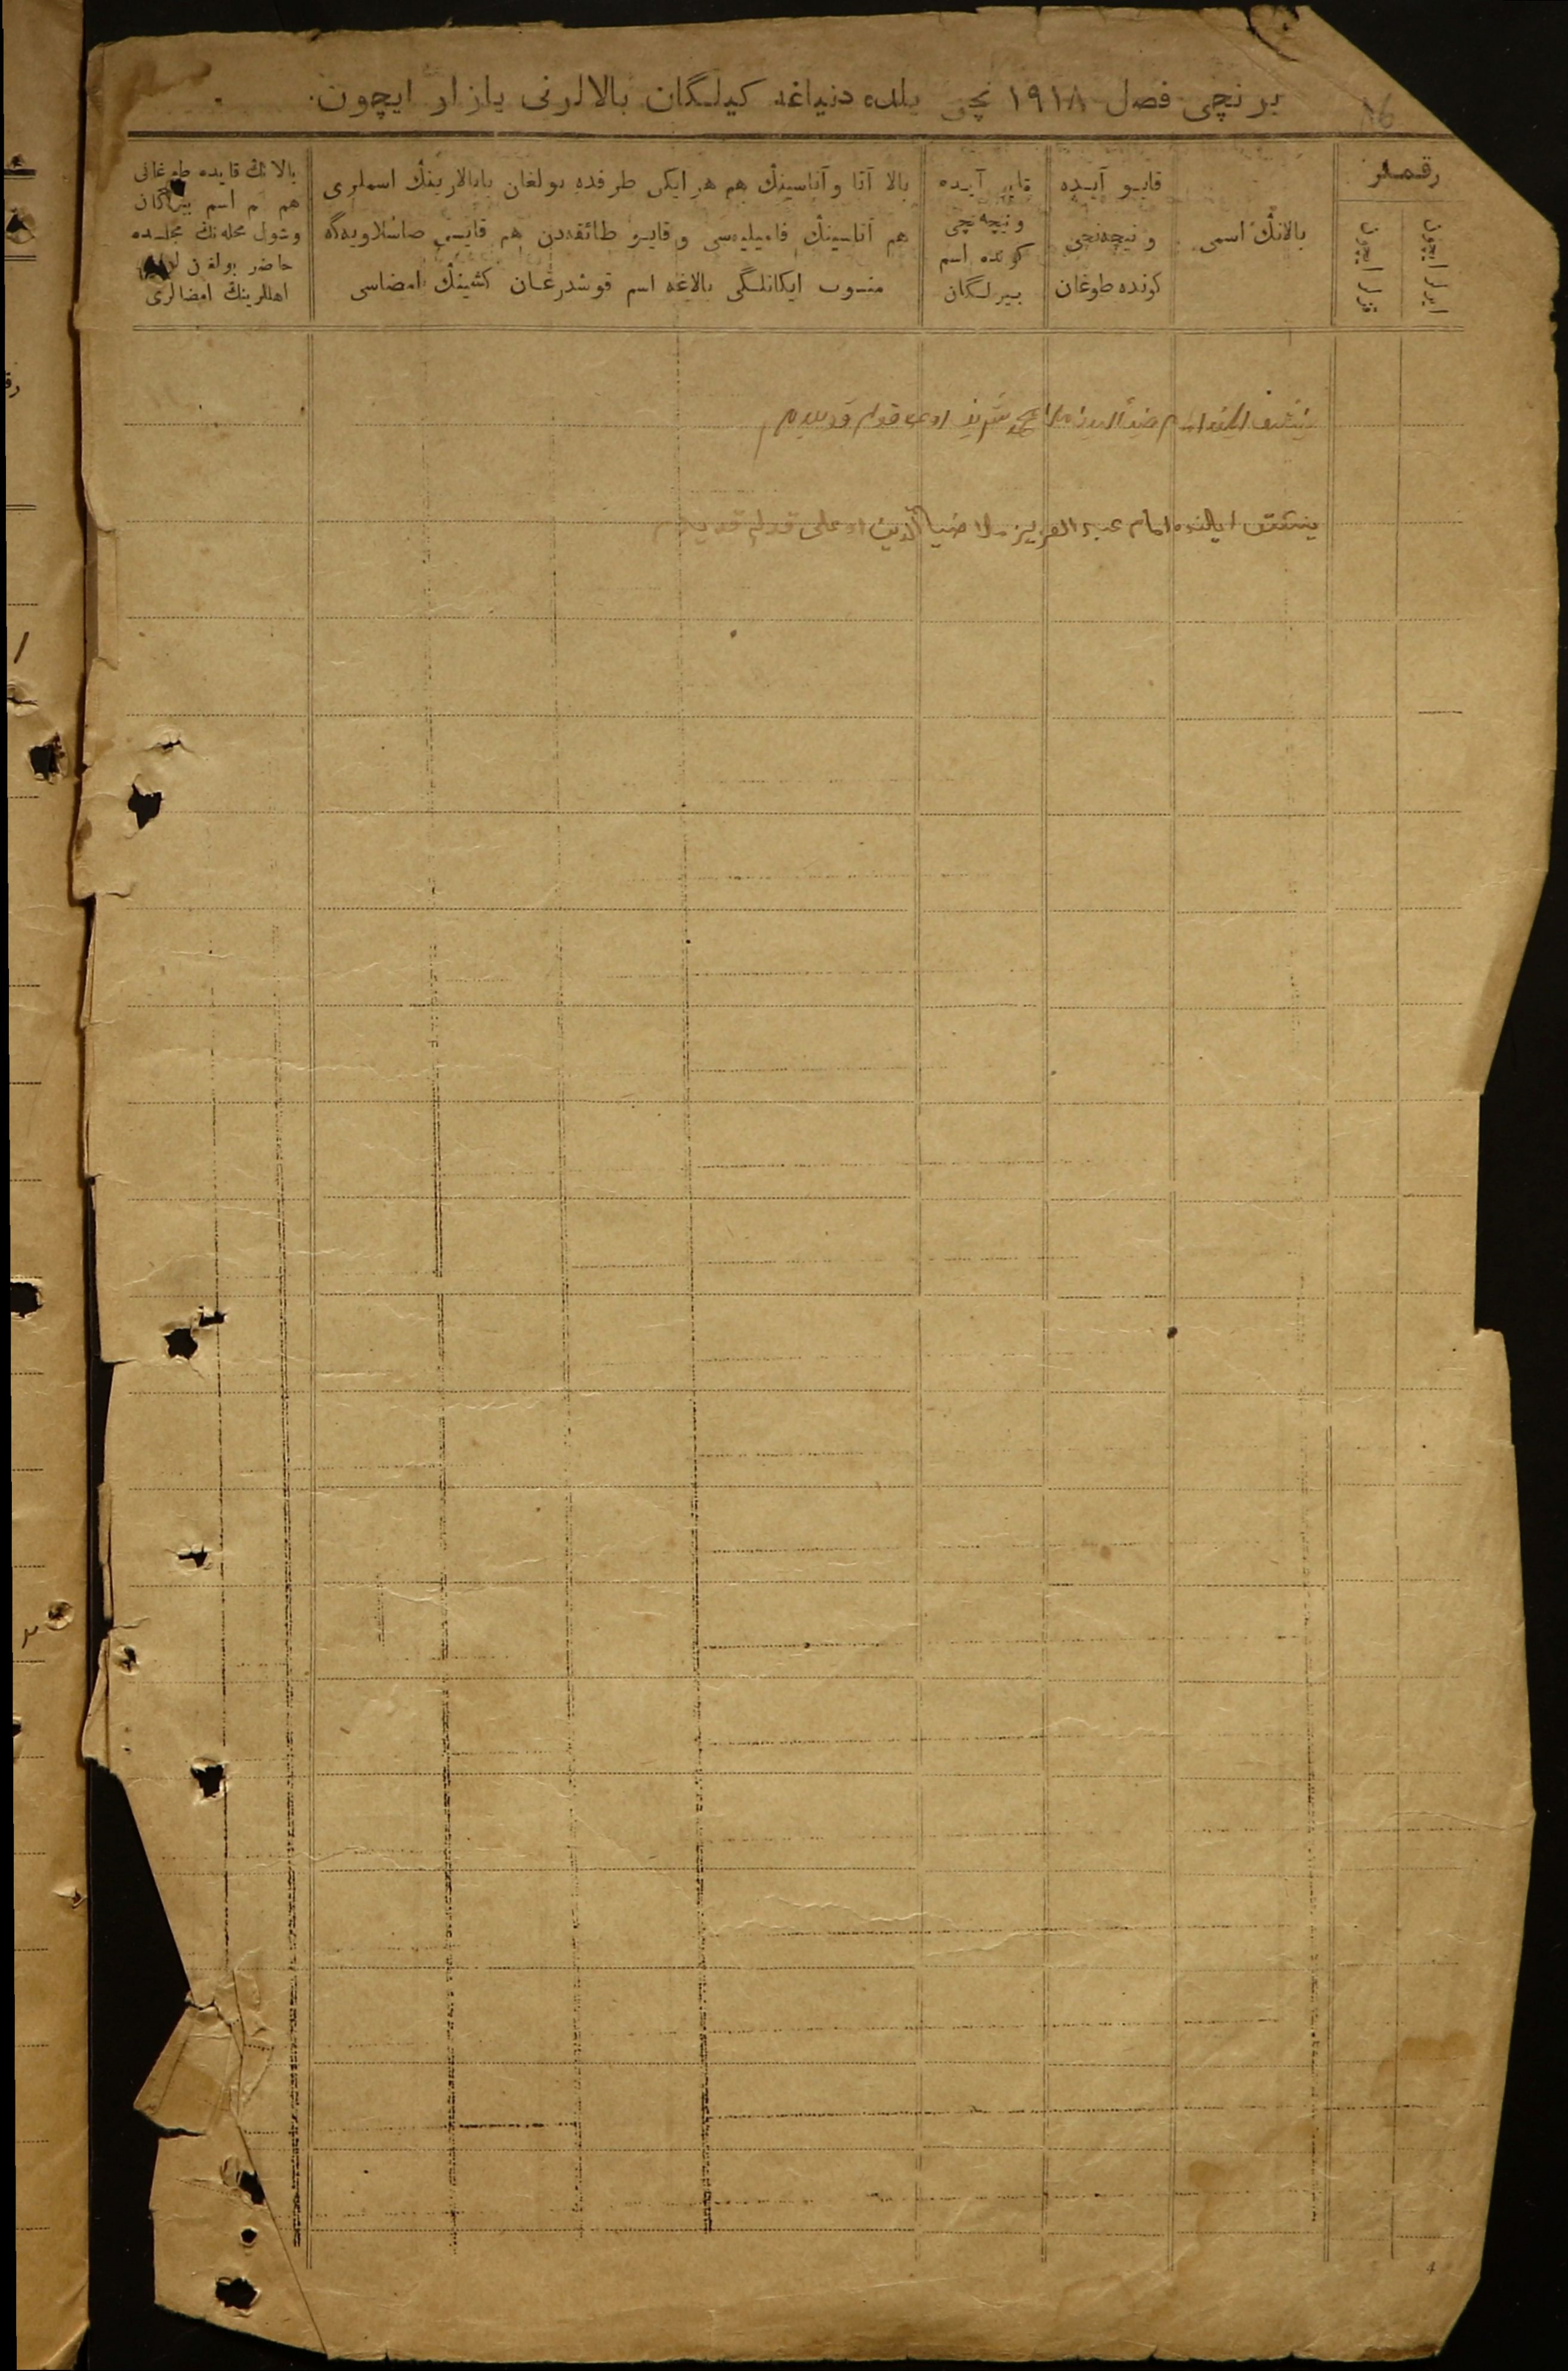 برنچی فصل ١٩١٨ نچی یلده دنیاغه کیلگان بالالرنی یازار ایچون.
16
رقملر
ایرلر ایچون
قزلر ایچون
بالانڭ اسمی
قایو آیده
و نیچه‌نچی
کونده طوغان
قایو آیده
و نیچه‌نچی
کونده اسم
بیرلگان
بالا آتا و آناسینڭ هم هر ایکی طرفده بولغان بابالارینڭ اسملری
هم آتاسینڭ فامیلیه‌سی و قایو طائفه‌دن هم قایسی صاسلاویه‌گه
منسوب ایکانلگی بالاغه اسم قوشدرغان کشینڭ امضاسی
بالانڭ قایده طوغانی
هم اسم بیرلگان
وشول محله‌نڭ مجلسده
حاضر بولغان
اهللرینڭ امضالری
ضیاالدین ملا محمد شریف اوغلی قولم قویدم
امام عبد العزیز ملا ضیاالدین اوغلی قولم قویدم
4